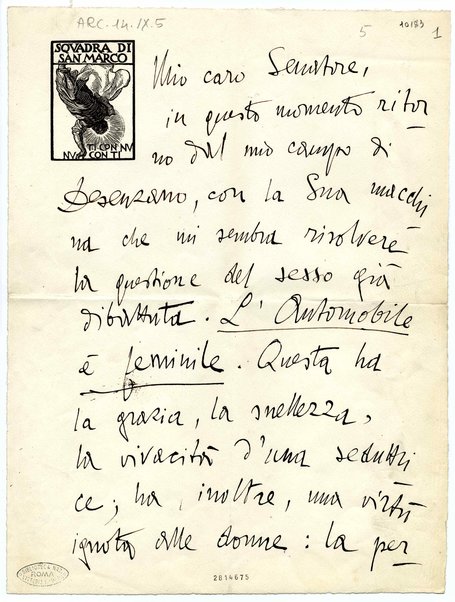 ARC. 14. IX. 5
5
10183
1
SQVADRA DI
SAN MARCO
TI CON NV
NV CON TI
Mio caro Senatore,
in questo momento ritor
no dal mio campo di
Desenzano, con la Sua macchi
na che mi sembra risolvere
la questione del sesso già
dibattuta. L' Automobile
è feminile. Questa ha
la grazia, la snellezza,
la vivacità d'una seduttri
ce; ha, inoltre, una virtù
ignota alle donne: la per
ROMA
2814675